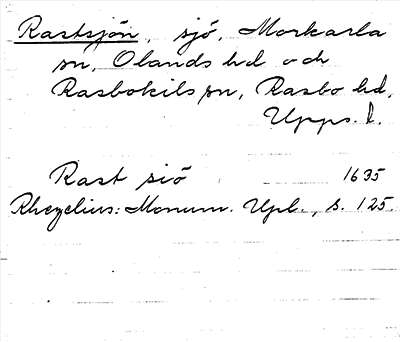 Rastsjön, sjö, Morkarla
sn, Olands hd och
Rasbokils sn, Rasbo hd,
Upps. l.
Rast siö 1635
Rhezelius: Monum. Upl., s. 125.